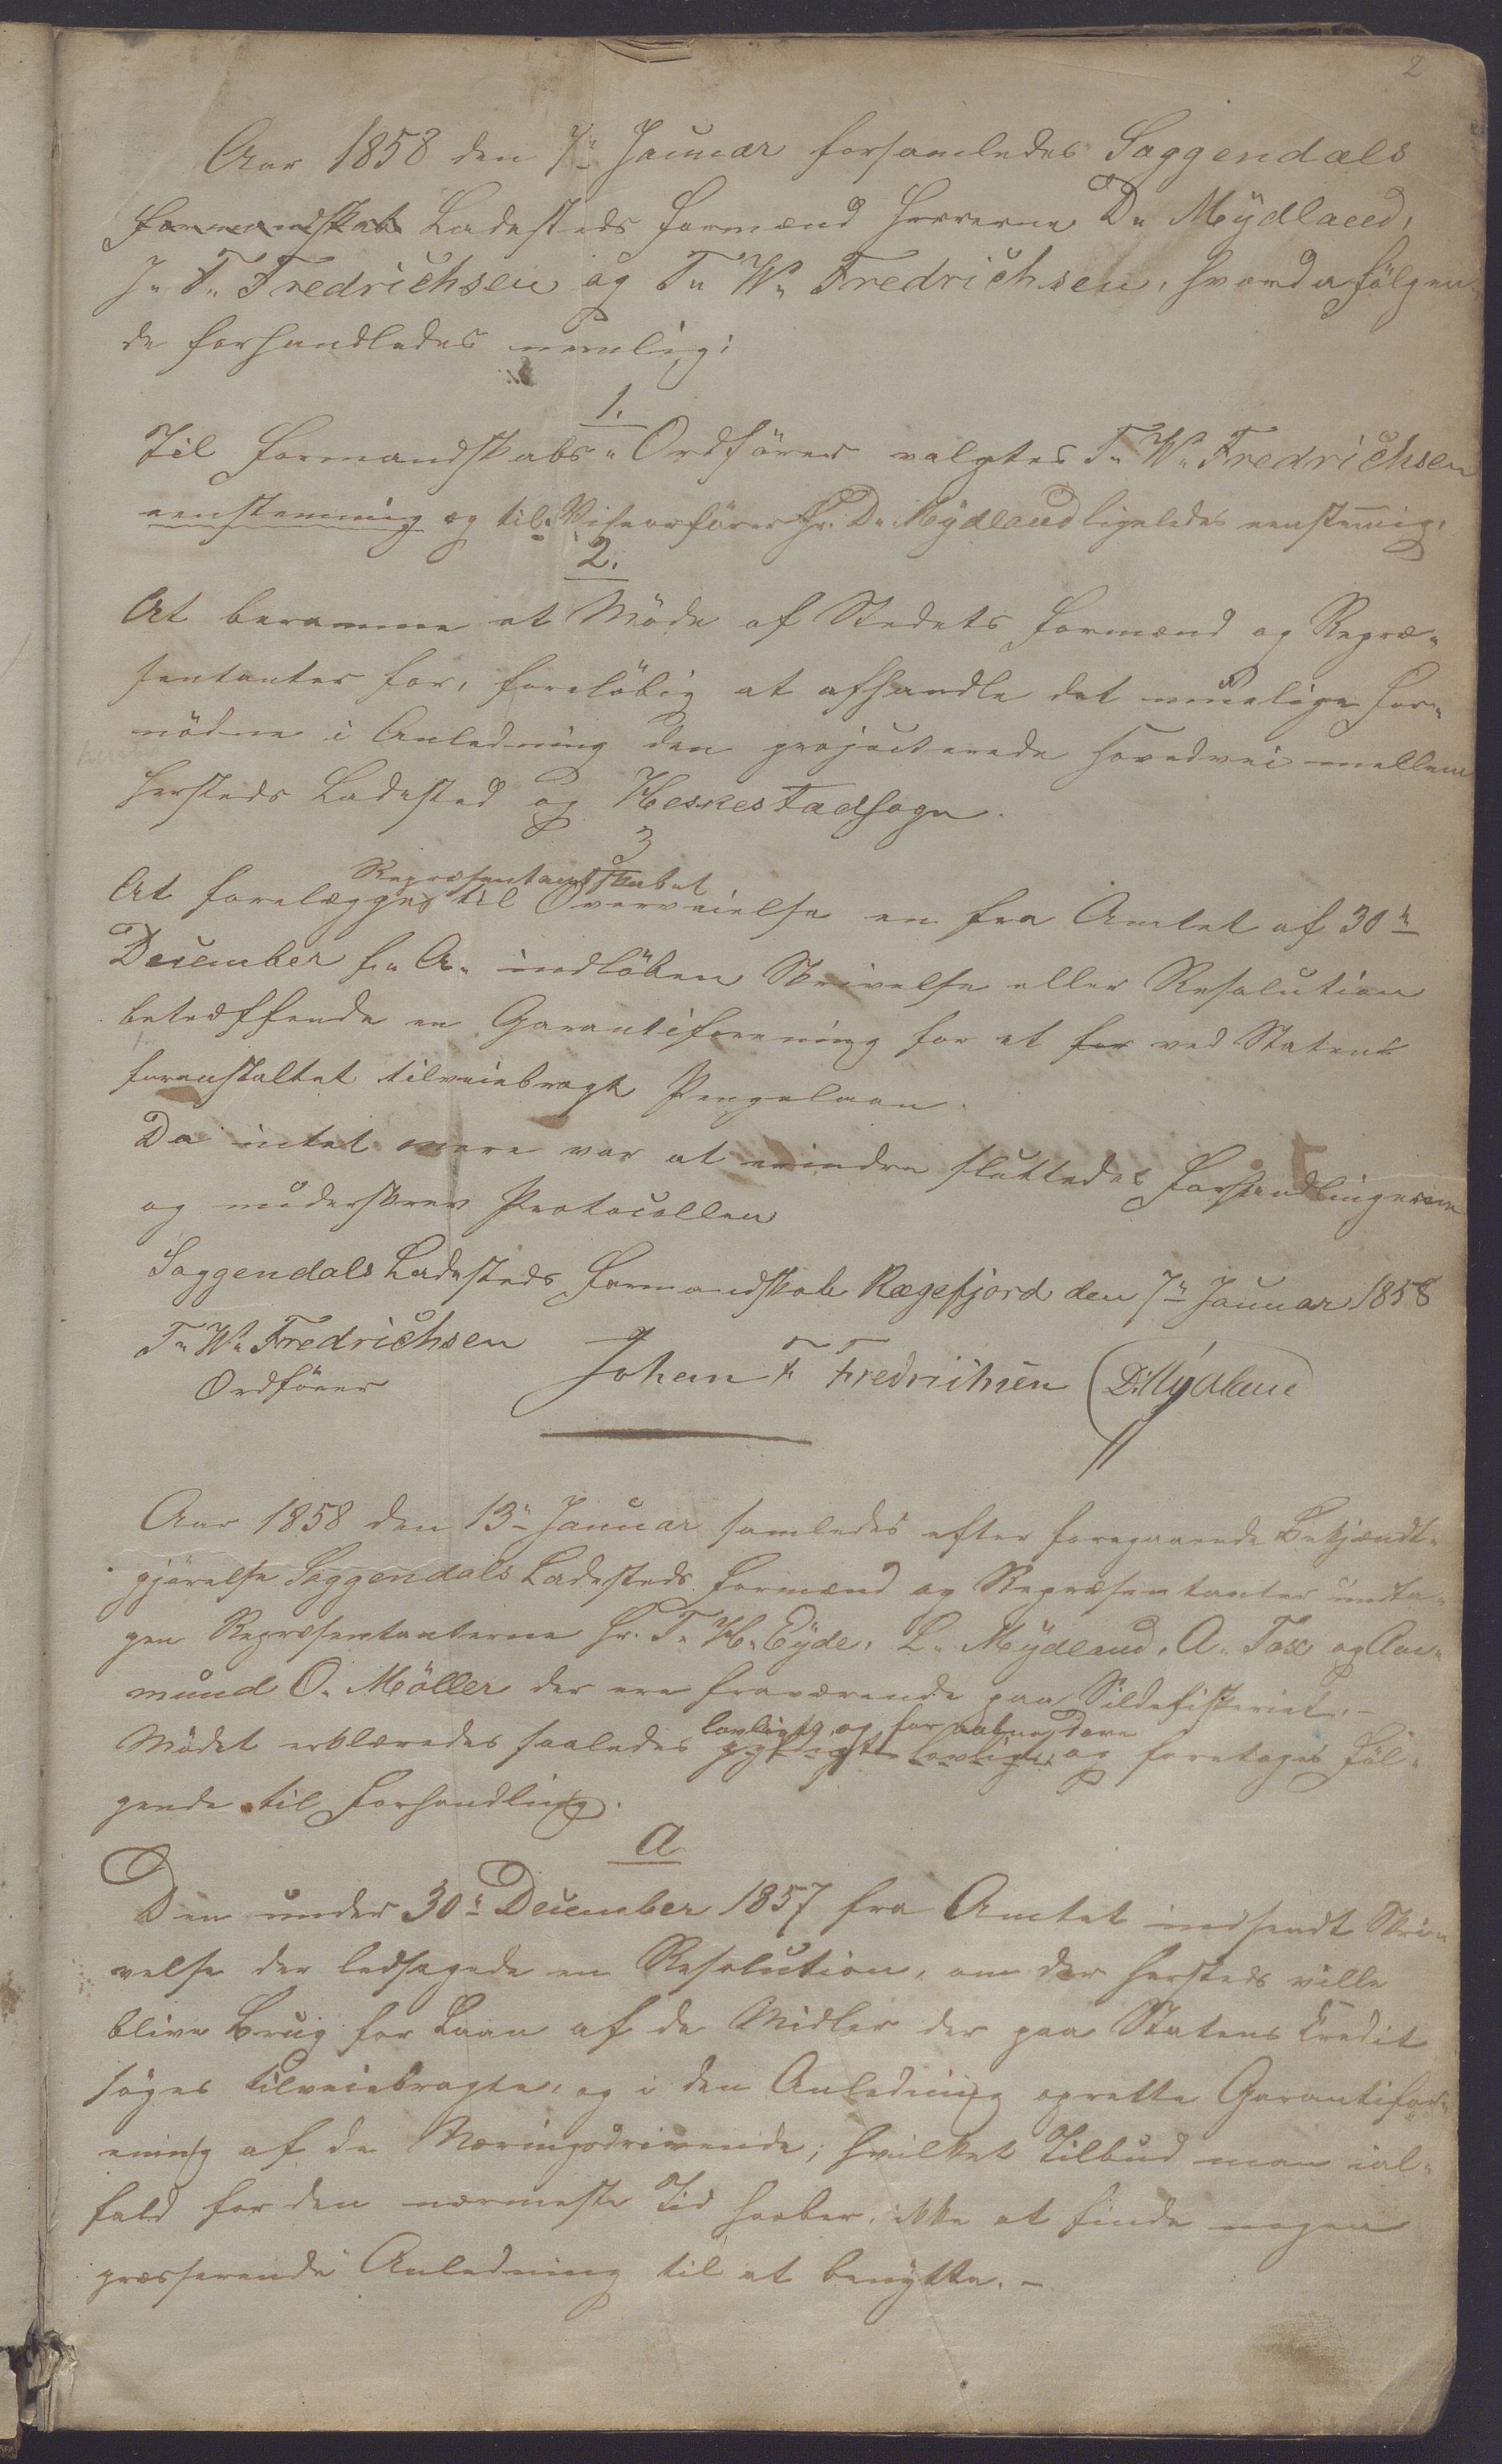 2
Aar 1858 den 7de Januar forsamledes Soggendals
Formandskab Ladesteds Formænd Herrerne D. Mÿdland,
J. F. Fredrichsen og T. W. Fredrichsen, hvorda følgen-
de forhandledes nemlig:
1.
Til Formandskabs-Ordfører valgtes T. W. Fredrichsen
eenstemmig og til Viseorfører Hr. D. Mÿdland ligeledes eenstemig.
2.
At beramme et Møde af Stedets Formænd og Repræ-
sentanter for, foreløbig at afhandle det muelige for-
nødne i Anledning den projecterede Hovedvei mellem
hersteds Ladested og Heskestadsogn.
3
Repræsentantskabet
At forelægges til Overveielse en fra Amtet af 30te
December f. A. indløben Skrivelse eller Resolution
betræffende en Garantiforening for et for ved Statens
foranstaltet tilveiebragt Pengelaan.
Da intet mere var at erindre sluttedes Forhandlingerne
og underskrev Protocollen
Soggendals Ladesteds Formandskab Rægefjord den 7de Januar 1858
T. W. Fredrichsen
Ordfører
Johan F Fredrichsen D. Mydland
Aar 1858 den 13de Januar samledes efter foregaaende Bekjændt-
gjørelse Soggendals Ladesteds Formænd og Repræsentanter undta-
gen Repræsentanterne Hr. T. H. Eÿde, L. Mÿdland, A. Tox og Aa-
mund O. Möller der ere fraværende paa Sildefiskeriet.-
lovligtg og for aabne Døre
Mødet erklæredes saaledes gyldigt lovligt og foretoges Føl-
gende til Forhandling.
a
Den under 30te December 1857 fra Amtet indsendt Skri-
velse der ledsagede en Resolution, om der hersteds ville
blive Brug for Laan af de Midler der paa Statens Credit
søges tilveiebragte, og i den Anledning oprette Garantifor-
ening af de Næringsdrivende; hvilket Tilbud man ial-
fald for den nærmeste Tid haaber, ikke at finde nogen
presserende Anledning til at benÿtte.-